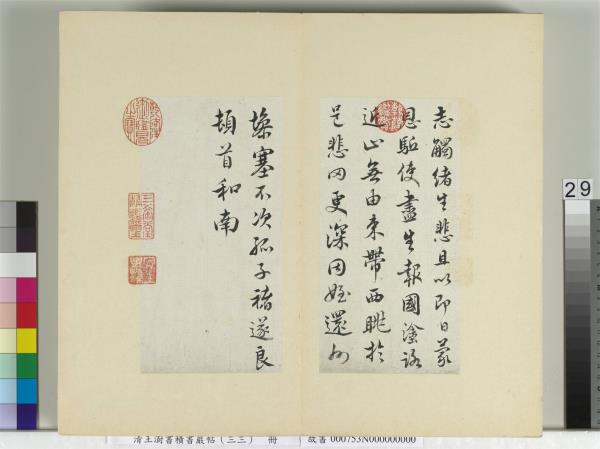 志觸緒生悲且以即日蒙
恩驅使盡生報國塗路
近止無由束帶西眺於
邑悲罔更深因姪還州
塞不次孤子褚遂良
頓首和南
29
清王澍書積書巖帖(三三) 冊 故書 000753N000000000